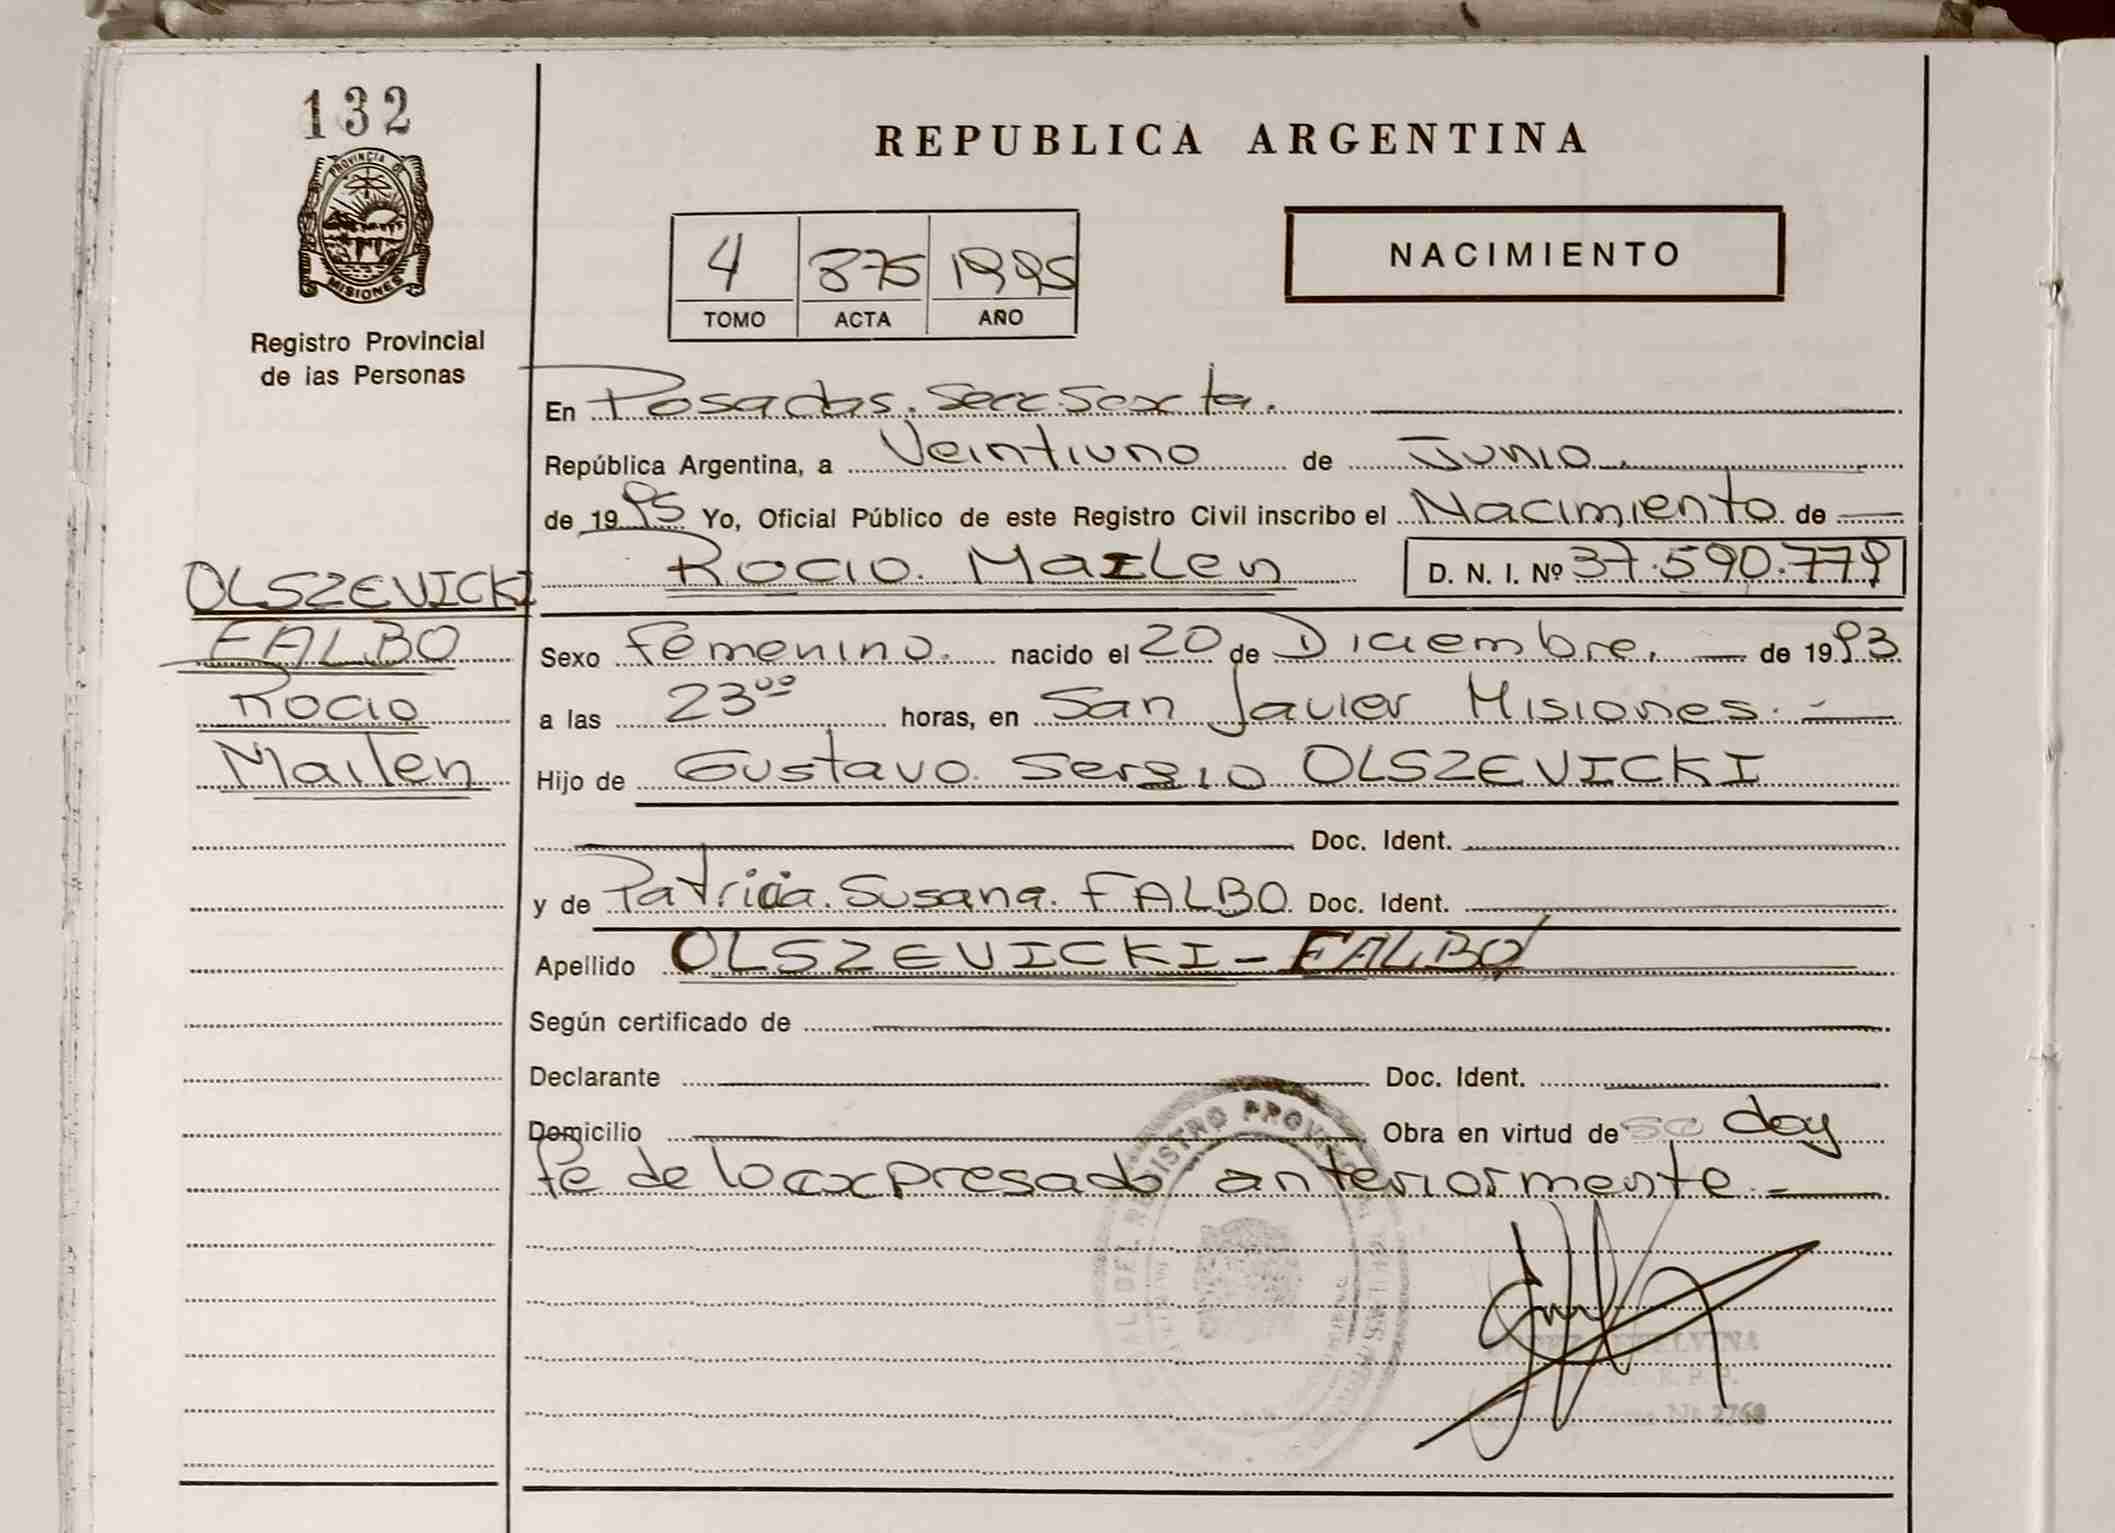 132
PROVINCIA DE
MISIONES
Registro Provincial
de las Personas
REPUBLICA ARGENTINA
4 875 1995
TOMO ACTA AÑO
NACIMIENTO
En Posadas. Secc. Sexta.
República Argentina, a Veintiuno de Junio
de 1995 Yo, Oficial Público de este Registro Civil inscribo el Nacimiento de
Rocio Mailen D. N. I. Nº 37.590.779
OLSZEVICKI
FALBO
Rocio
Mailen
Sexo femenino. nacido el 20 de Diciembre. de 1993
a las 23⁰⁰ horas, en San Javier Misiones.
Hijo de Gustavo Sergio OLSZEVICKI
Doc. Ident.
y de Patricia Susana FALBO Doc. Ident.
Apellido OLSZEVICKI - FALBO
Según certificado de
Declarante Doc. Ident.
Domicilio Obra en virtud de doy
fe de lo expresado anteriormente.
REGISTRO PROVINCIAL
Nº 2768